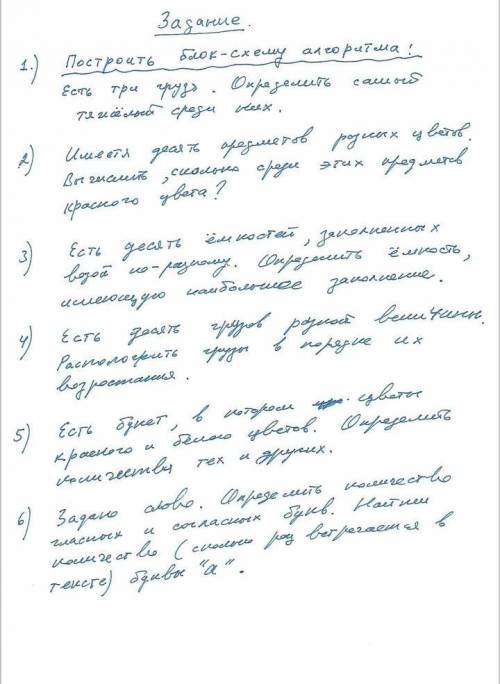 Задание.
1.) Построить блок-схему алгоритма!
Есть три груза. Определить самый
тяжёлый среди них.
2) Имеется десять предметов разных цветов.
Вычислить, сколько среди этих предметов
красного цвета?
3) Есть десять ёмкостей, заполненных
водой по-разному. Определить ёмкость,
имеющую наибольшее заполнение.
4) Есть десять грузов разной величины.
Расположить грузы в порядке их
возрастания.
5) Есть букет, в котором цветы
красного и белого цветов. Определить
количества тех и других.
6) Задано слово. Определить количество
гласных и согласных букв. Найти
количество (сколько раз встречается в
тексте) буквы "а".